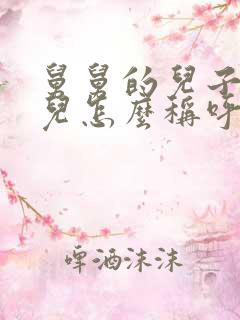 舅舅的兒子
兒怎麼稱呼
啤酒沫沫